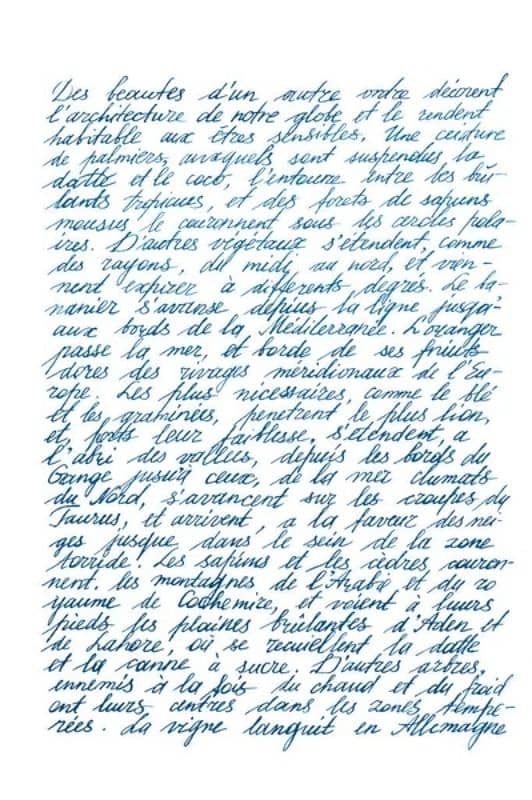 Des beautes d'un autre ordre décorent
l'architecture de notre globe et le rendent
habitable aux êtres sensibles. Une ceidure
de palmiers, auxquels sont suspendus la
datte et le coco, l'entoure entre les brû-
lants tropiques, et des forets de sapins
mousus le couronnent sous les cercles pola-
ires. D'autres végétaux s'étendent, comme
des rayons, du midi au nord, et vien-
nent expirer à differents degres. Le ba-
nanier s'avanse depius la ligne jusqa'-
aux bords de la Méditerranée. L'oranger
passe la mer, et borde de ses friuts
dores des rivages méridionaux de l'Eu-
rope. Les plus nicessaires, comme le blé
et les graminées, penetrent le plus lion,
et, forts leur faiblesse, s'etendent, a
l'abri des vallees, depuis les bords du
Gange jusu'a ceux, de la mer clumats
du Nord, s'avancent sur les croupes du
Taurus, et arrivent, a la faveur des nei-
ges jusque dans le sein de la zone
torride. Les sapins et les cèdres couron-
nent les montagnes de l'Arabe et du ro
yaume de Cachemire, et voient à leurs
pieds les plaines brûlantes d'Aden et
de Lahore, où se recuiellent la datte
et la canne à sucre. D'autres arbres,
ennemis à la fois du chaud et du froid
ont leurs centres dans les zones tempe-
rées. La vigne languit en Allemagne